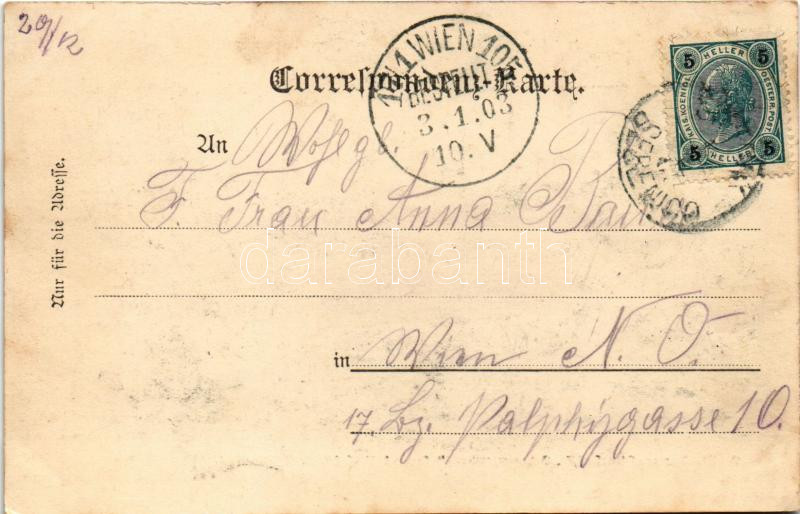 29/12
Correspondenz-Karte.
17/1 WIEN 105
BESTELLT
3.1.03
10.V
5 HELLER 5
KAIS. KOENIGL.
OESTERR. POST.
5 HELLER 5
An
Wohlgb.
F. Frau Anna
in Wien N. Ö.
17. Bz. Palphygasse 10.
Nur für die Adresse.
darabanth